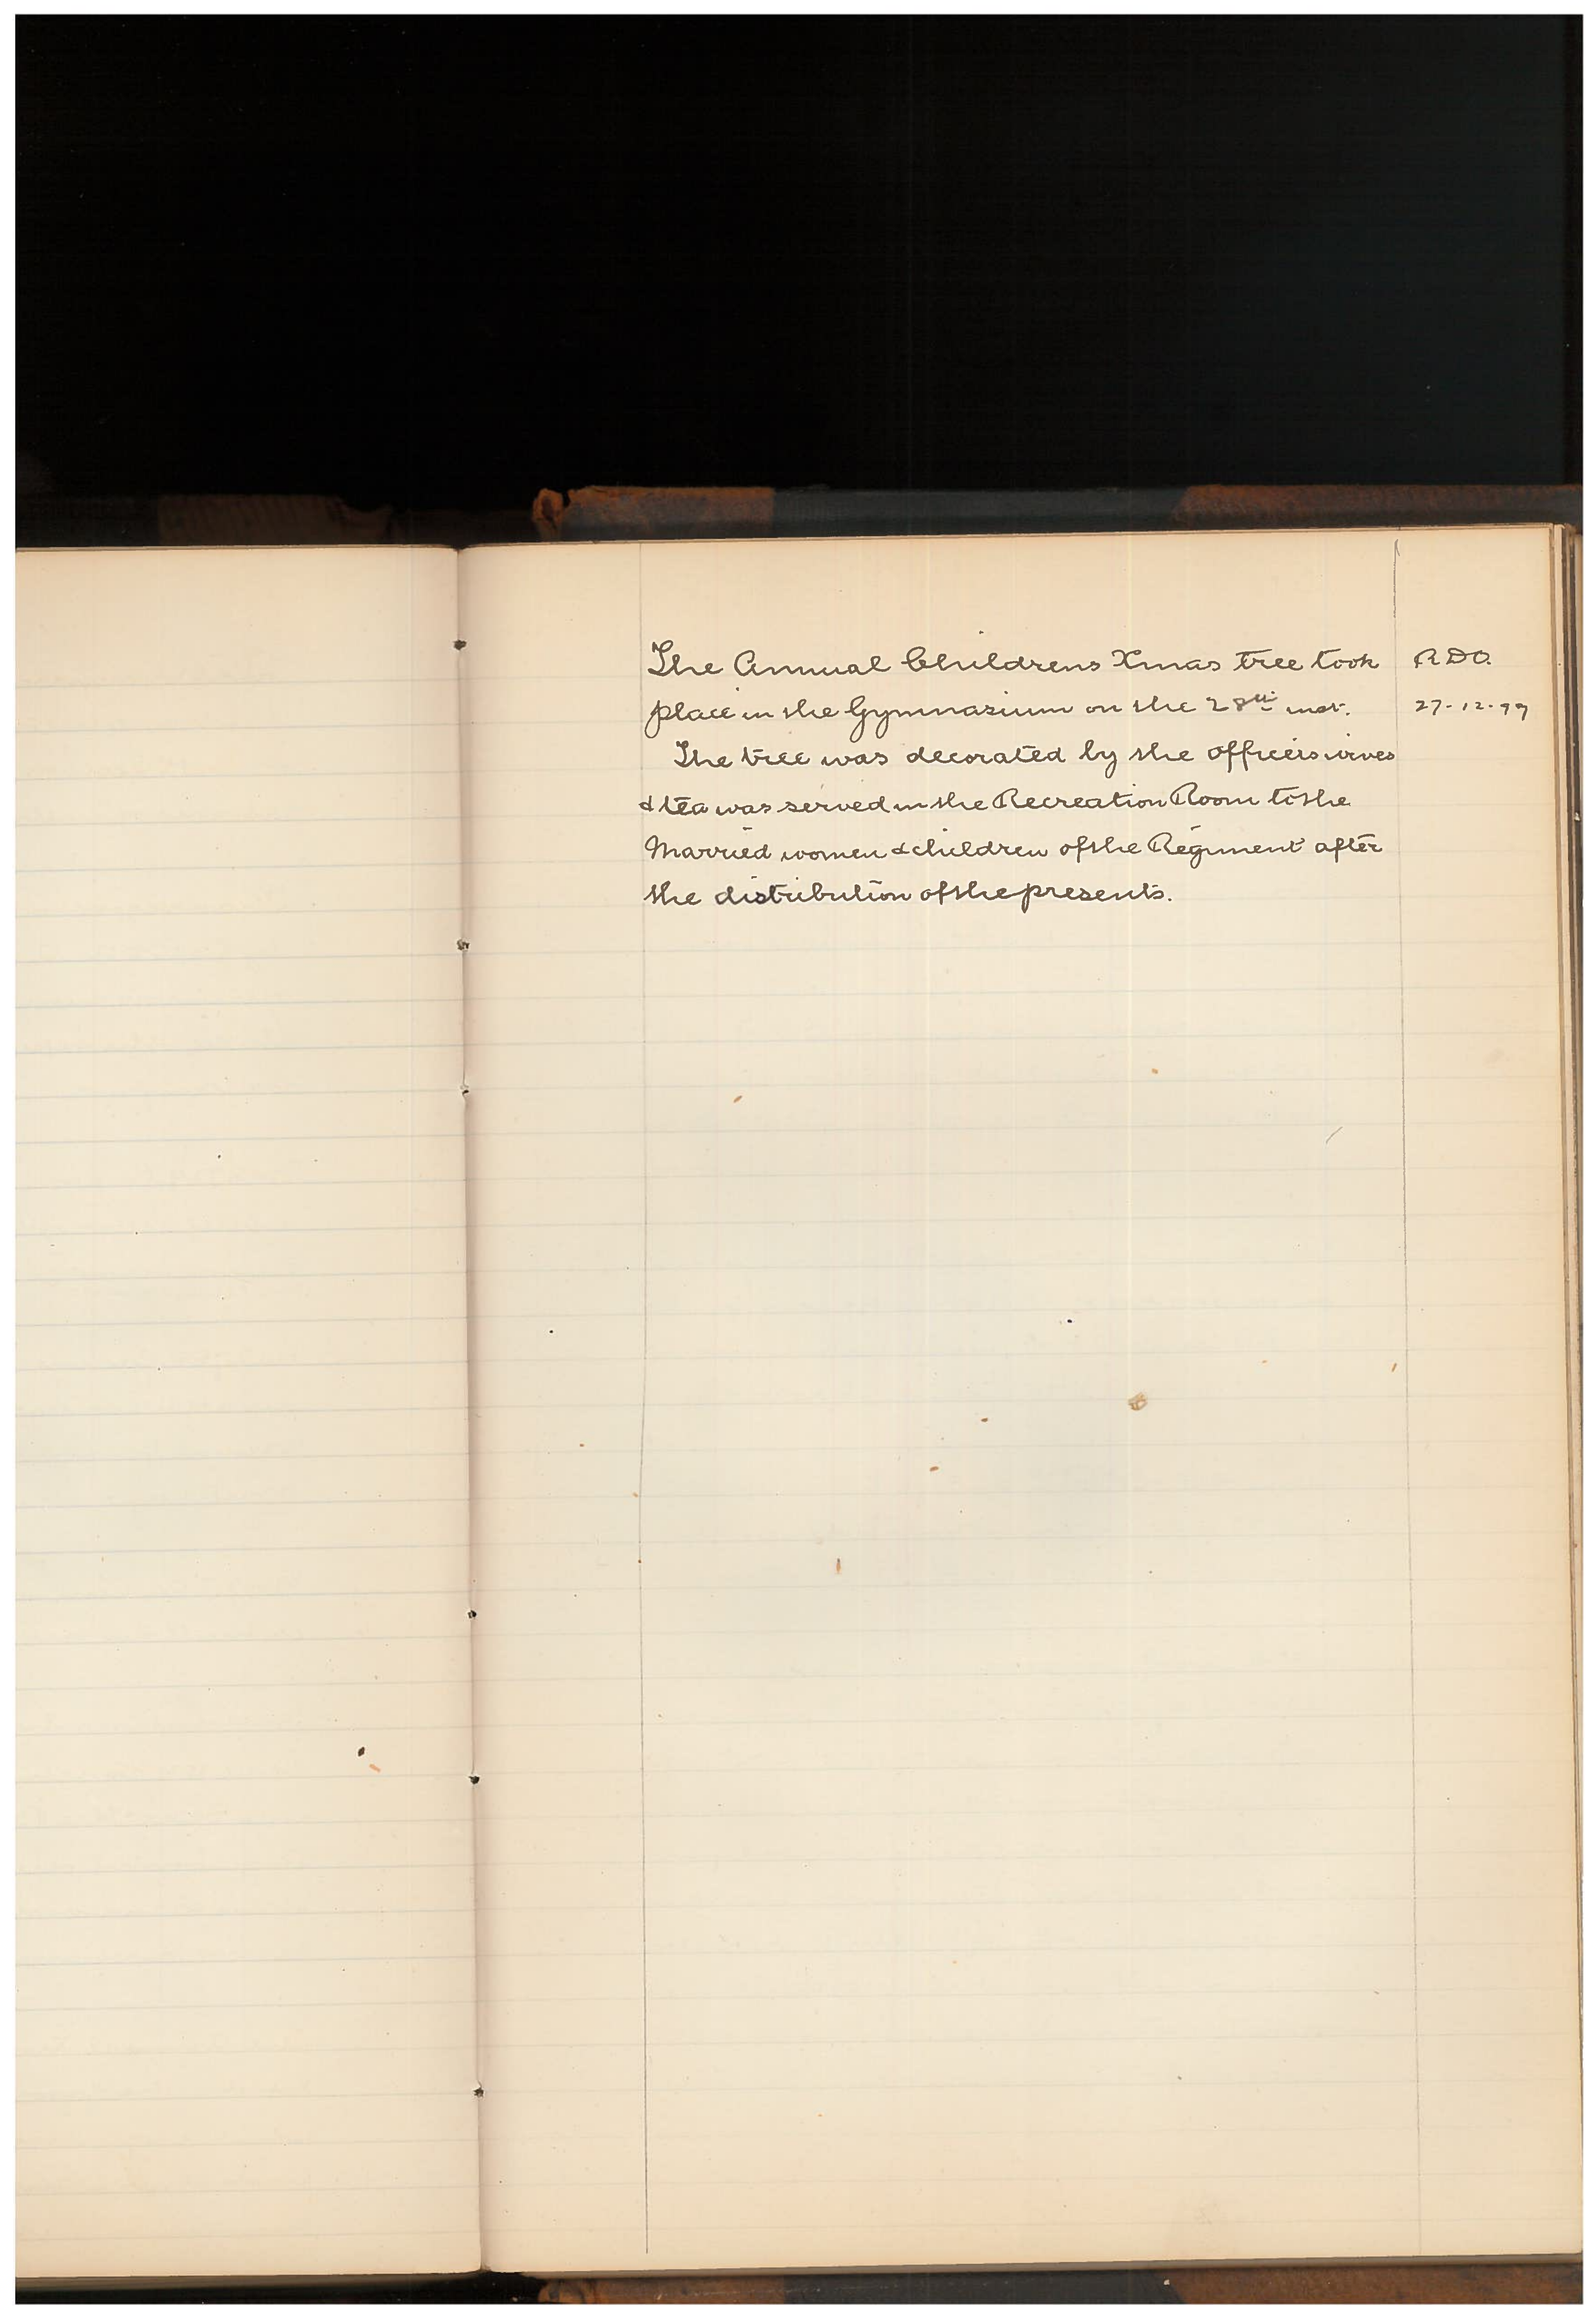 The Annual Childrens Xmas tree took
place in the Gymnasium on the 28th inst.
The tree was decorated by the officers wives
& tea was served in the Recreation Room to the
Married women & children of the Regiment after
the distribution of the presents.
R.D.O.
27-12-99